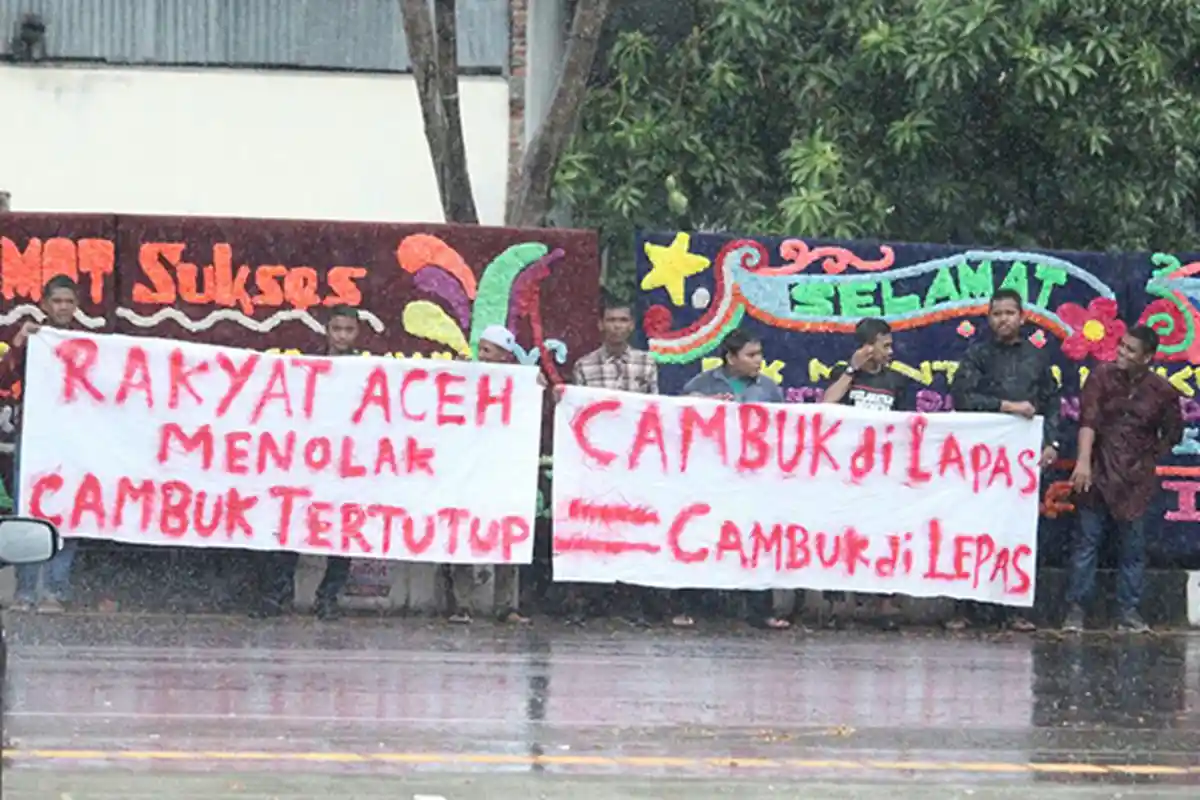 Sukses
SELAMAT
RAKYAT ACEH
MENOLAK
CAMBUK TERTUTUP
CAMBUK di LAPAS
= CAMBUK di LEPAS